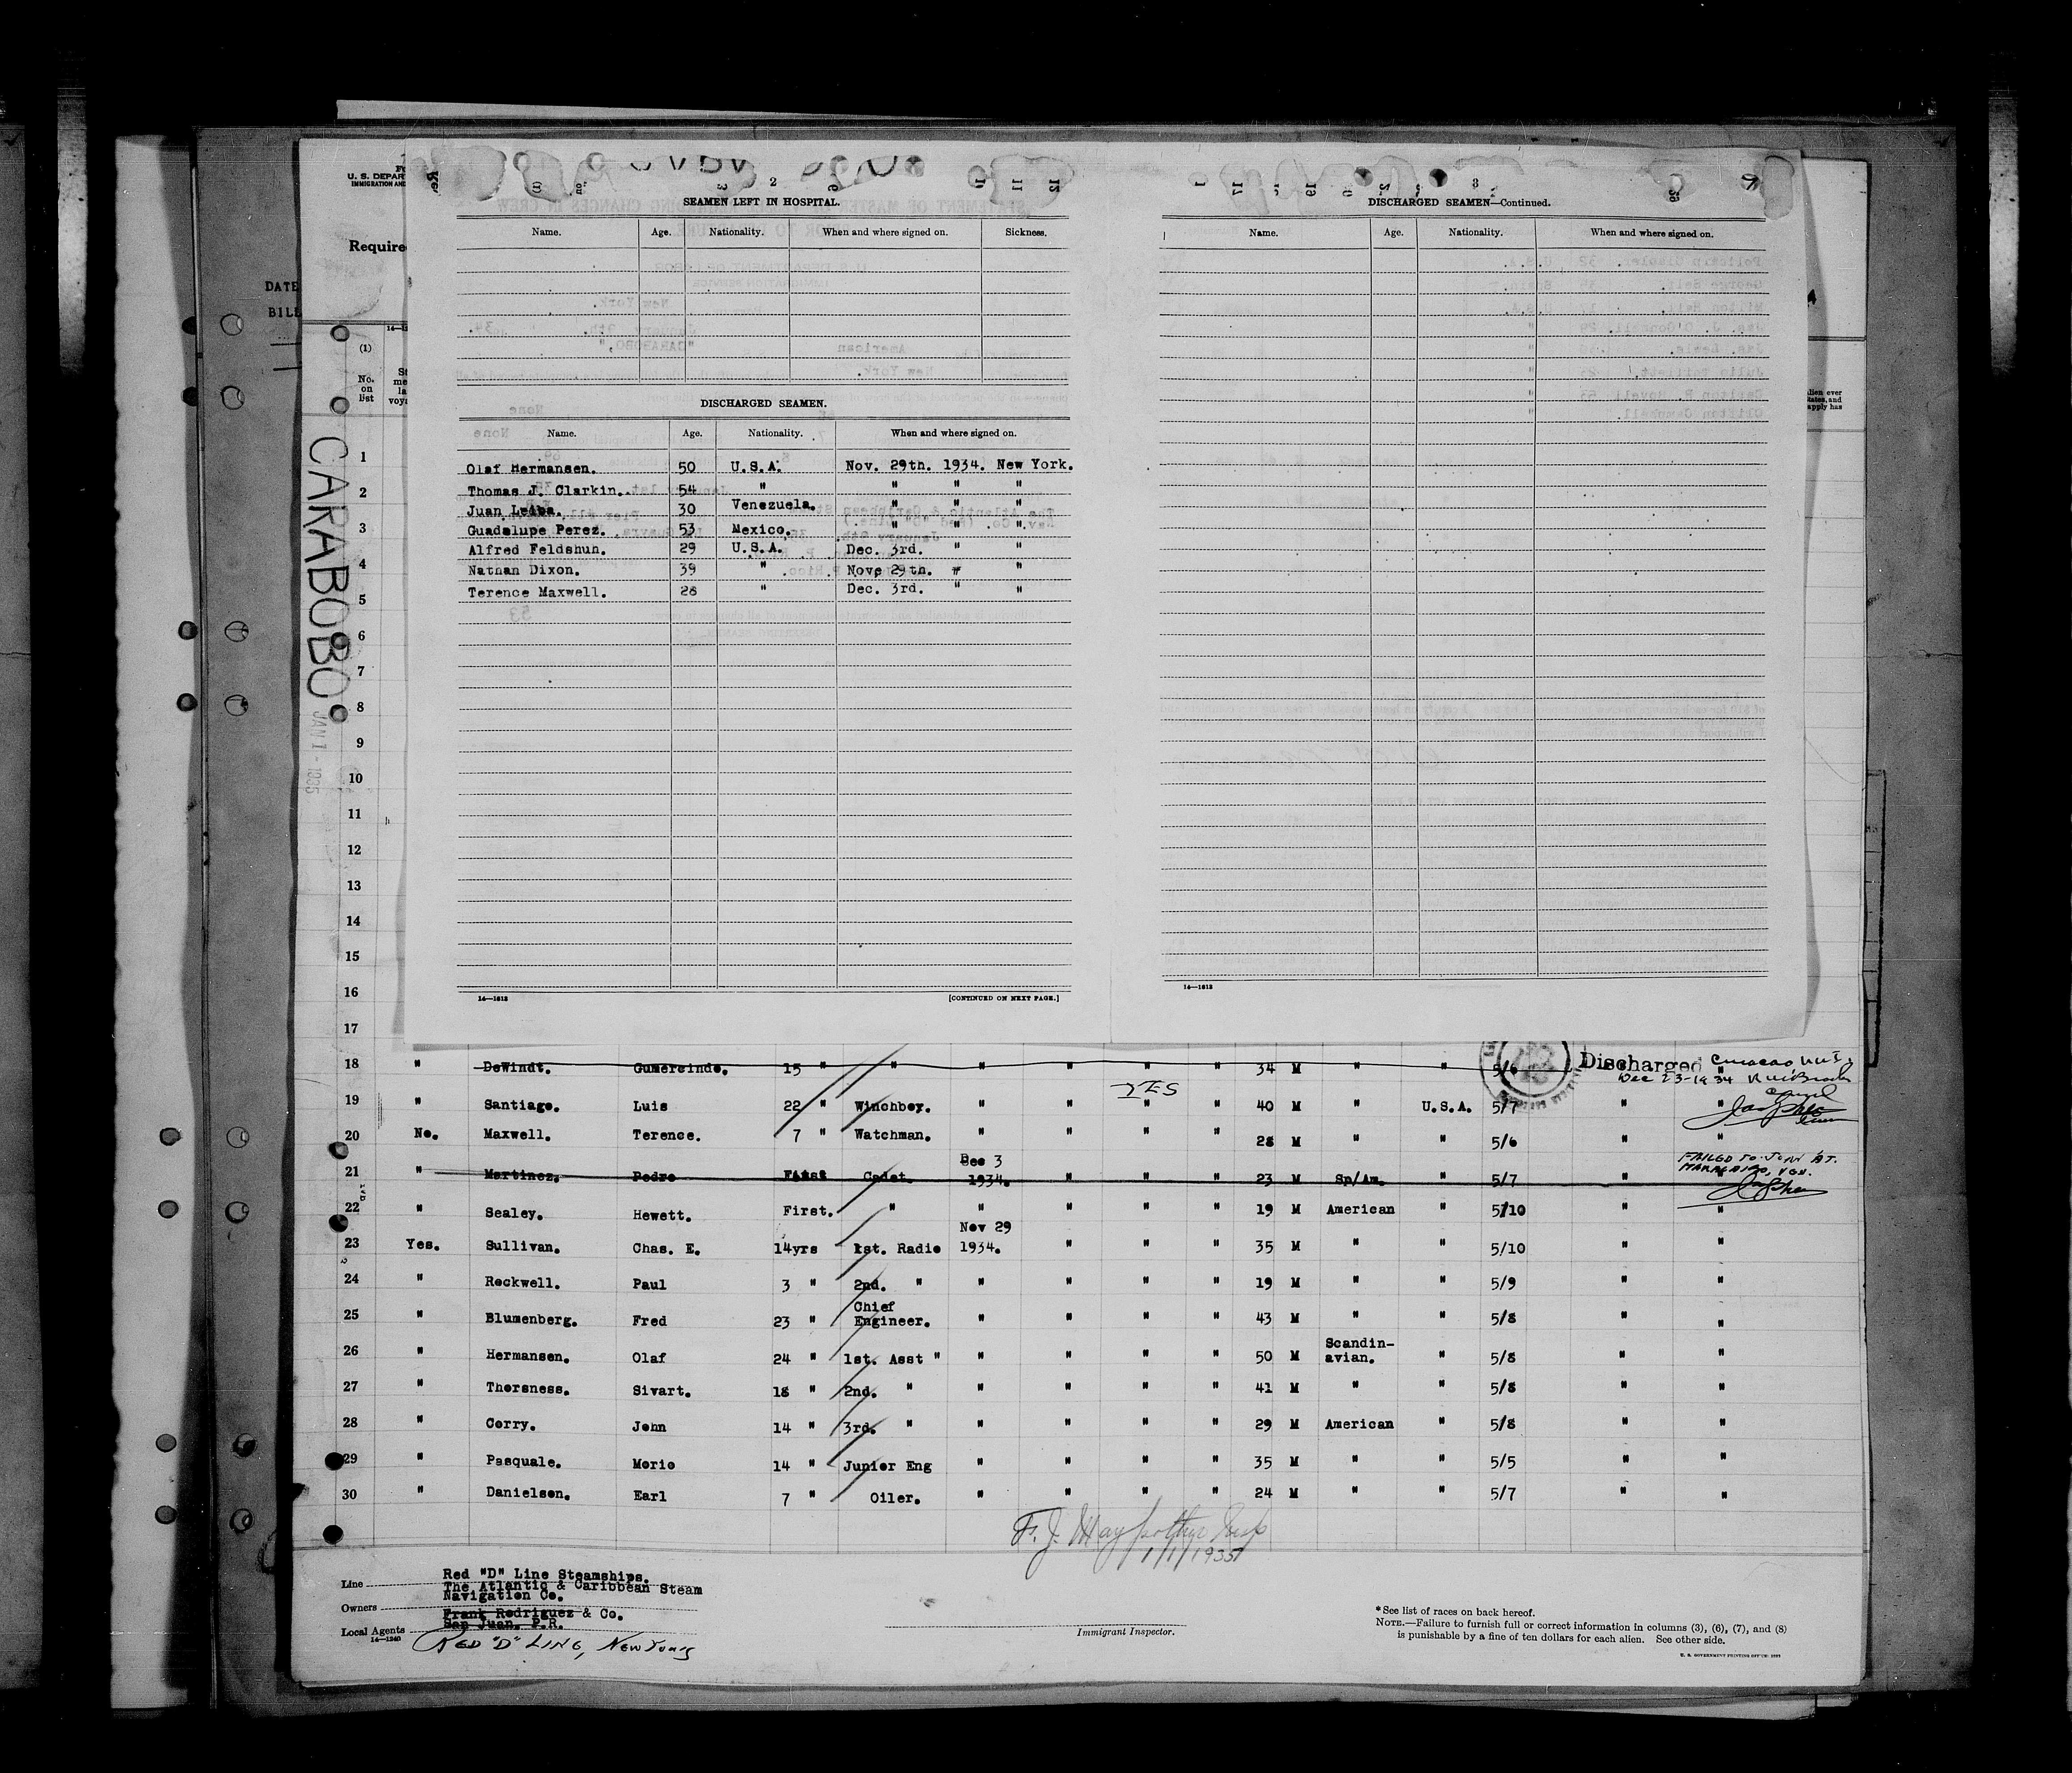 U. S. DEPAR
IMMIGRATION AND
Require
DATE
BILL
CARABOBO
JAN 1 - 1935
(1)
No. on list
SEAMEN LEFT IN HOSPITAL.
Name. Age. Nationality. When and where signed on. Sickness.
DISCHARGED SEAMEN.
Name. Age. Nationality. When and where signed on.
Olaf Hermansen. 50 U.S.A. Nov. 29th. 1934. New York.
Thomas J. Clarkin. 54 " " " "
Juan Leiba. 30 Venezuela. " " "
Guadelupe Perez. 53 Mexico. " " "
Alfred Feldshun. 29 U.S.A. Dec. 3rd. " "
Nathan Dixon. 39 " Nove 29th. " "
Terence Maxwell. 28 " Dec. 3rd. " "
14—1813 [CONTINUED ON NEXT PAGE.]
DISCHARGED SEAMEN—Continued.
Name. Age. Nationality. When and where signed on.
14—1813
1
2
3
4
5
6
7
8
9
10
11
12
13
14
15
16
17
18 " DeWindt. Gumercindo. 15 " " " " " " 34 M " " 5/6 Discharged Curacao
Dec 23-1934
YES
19 " Santiago. Luis 22 " Winchboy. " " " " 40 M " U.S.A. 5/7 " "
20 No. Maxwell. Terence. 7 " Watchman. " " " " 28 M " " 5/6 " "
21 " Martinez. Pedro First Cadet. Dec 3 1934. " " " 23 M Sp/Am. " 5/7 " "
FAILED TO JOIN AT.
MARACAIBO, VEN.
22 " Sealey. Hewett. First. " " " " " 19 M American " 5/10 " "
23 Yes. Sullivan. Chas. E. 14yrs 1st. Radio Nov 29 1934. " " " 35 M " " 5/10 " "
24 " Rockwell. Paul 3 " 2nd. " " " " " 19 M " " 5/9 " "
25 " Blumenberg. Fred 23 " Chief Engineer. " " " " 43 M " " 5/8 " "
26 " Hermansen. Olaf 24 " 1st. Asst " " " " " 50 M Scandin-avian. " 5/8 " "
27 " Thorsness. Sivart. 18 " 2nd. " " " " " 41 M " " 5/8 " "
28 " Corry. John 14 " 3rd. " " " " " 29 M American " 5/8 " "
29 " Pasquale. Morie 14 " Junior Eng " " " " 35 M " " 5/5 " "
30 " Danielson. Earl 7 " Oiler. " " " " 24 M " " 5/7 " "
1/1/1935
Line Red "D" Line Steamships.
Owners The Atlantic & Caribbean Steam Navigation Co.
Local Agents Frank Rodriguez & Co.
San Juan. P.R.
14—1240
RED "D" LINE, NEW YORK
Immigrant Inspector.
* See list of races on back hereof.
NOTE.—Failure to furnish full or correct information in columns (3), (6), (7), and (8)
is punishable by a fine of ten dollars for each alien. See other side.